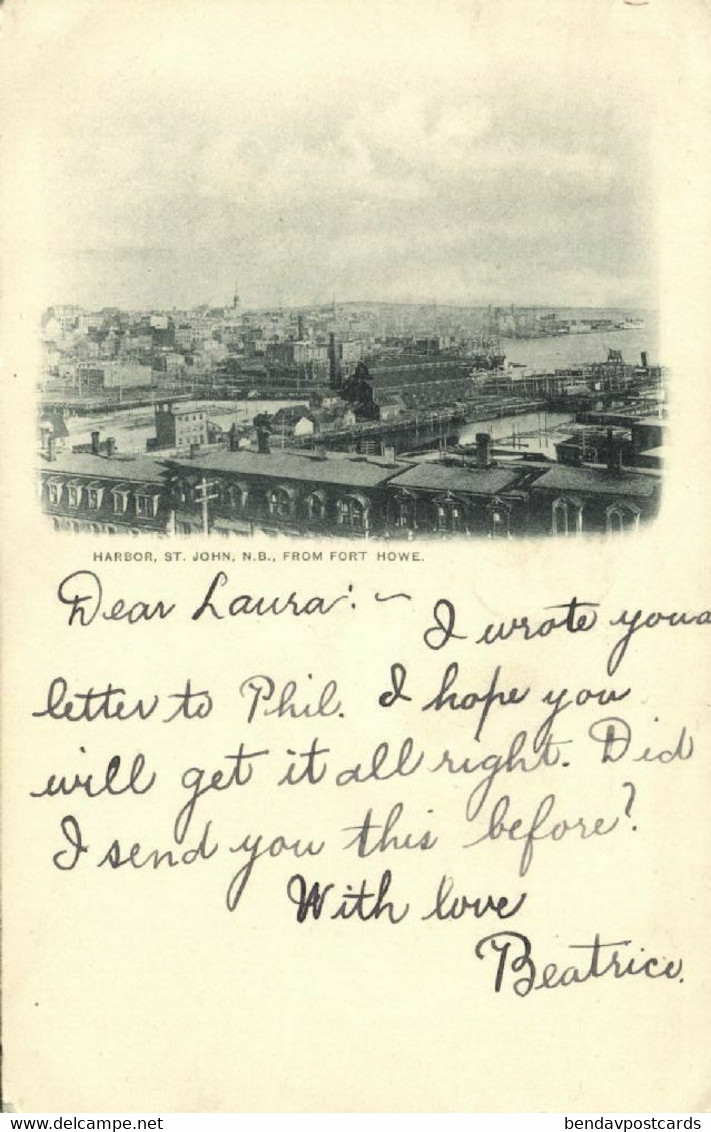 HARBOR, ST. JOHN, N.B., FROM FORT HOWE.
Dear Laura: ~
I wrote you a
letter to Phil. I hope you
will get it all right. Did
I send you this before?
With love
Beatrice.
www.delcampe.net
bendavpostcards